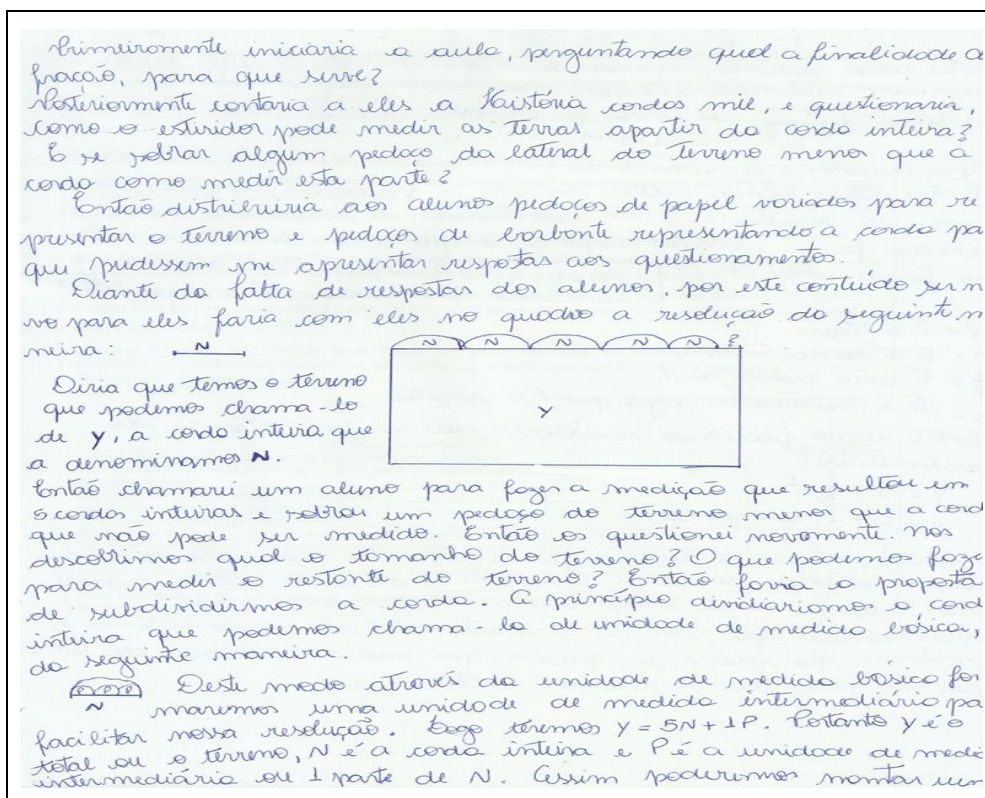 Primeiromente iniciaria a aula, perguntando qual a finalidade d
fração, para que serve?
Posteriormente contaria a eles a Haistória cordas mil, e questionaria,
como o estiridor pode medir as terras apartir da corda inteira?
E se sobrar algum pedaço da lateral do terreno menor que a
corda como medir esta parte?
Então distribuiria aos alunos pedaços de papel variados para re
presentar o terreno e pedaços de barbante representando a corda pa
que pudessem me apresentar respostas aos questionamentos.
Diante da falta de respostas dos alunos, por este contiúdo ser n
vo para eles faria com eles no quadro a resolução da seguinte m
neira: N
N N N N N ?
Y
Diria que temos o terreno
que podemos chama-lo
de Y, a corda inteira que
a denominamos N.
Então chamarei um aluno para fazer a medição que resultou em
5 cordas inteiras e sobrou um pedaço do terreno menor que a cord
que não pode ser medido. Então os questionei novamente. Nos
descobrimos qual o tamanho do terreno? O que podemos faze
para medir o restante do terreno? Então faria a proposta
de subdividirmos a corda. A princípio dividiariamos a cord
inteira que podemos chama-la de unidade de medida básica,
da seguinte maneira.
N
Deste modo através da unidade de medida básica for
maremos uma unidade de medida intermediária pa
facilitar nossa resolução. Logo teremos Y = 5N + 1P. Portanto Y é o
total ou o terreno, N é a corda inteira e P é a unidade de medi
intermediária ou 1 parte de N. Assim poderemos montar um